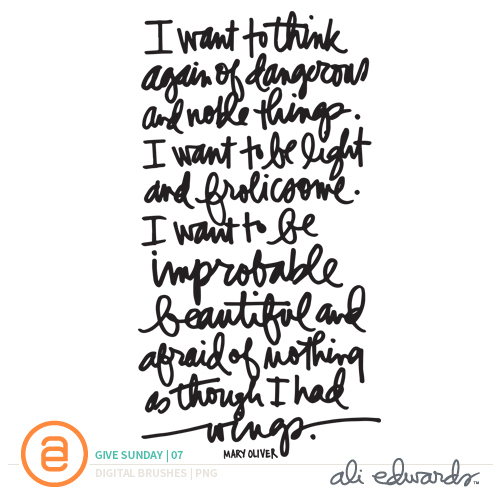 I want to think
again of dangerous
and noble things.
I want to be light
and frolicsome.
I want to be
improbable
beautiful and
afraid of nothing
as though I had
wings.
MARY OLIVER
ae
GIVE SUNDAY | 07
DIGITAL BRUSHES | PNG
ali edwards™